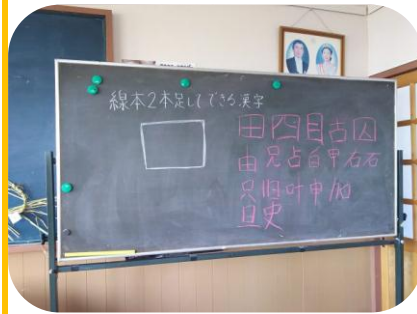 線本2本足してできる漢字
田四目古囚
由兄占白甲右石
只旧叶申加
旦史